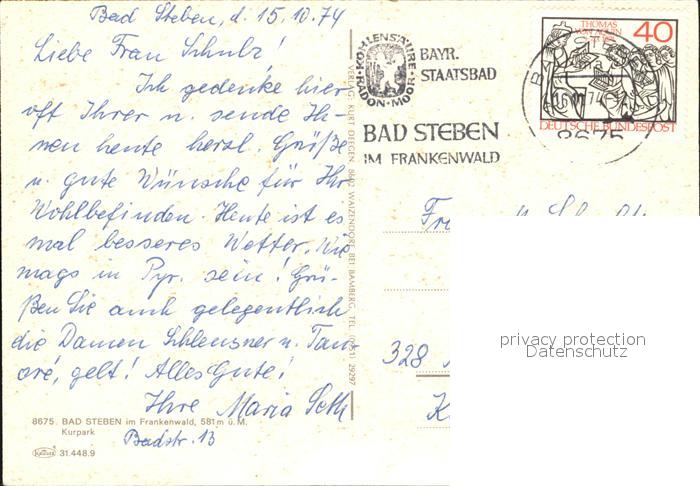 Bad Steben, d. 15.10.74
Liebe Frau Schulz!
Ich gedenke hier
oft Ihrer u. sende Ih-
nen heute herzl. Grüße
u. gute Wünsche für Ihr
Wohlbefinden. Heute ist es
mal besseres Wetter. Wie
mags in Pyr. sein! Grü-
ßen Sie auch gelegentlich
die Damen Schleusner u. Tan
oré, gelt! Alles Gute!
Ihre Maria Seth
Badstr. 13
8675. BAD STEBEN im Frankenwald, 581 m ü. M.
Kurpark
31.448.9
VERLAG: KURT DEEGEN 8602 WAIZENDORF BEI BAMBERG, TEL. 29297
KOHLENSÄURE · RADON · MOOR
BAYR.
STAATSBAD
BAD STEBEN
IM FRANKENWALD
THOMAS
VON AQUIN
40
DEUTSCHE BUNDESPOST
8675
328
privacy protection
Datenschutz